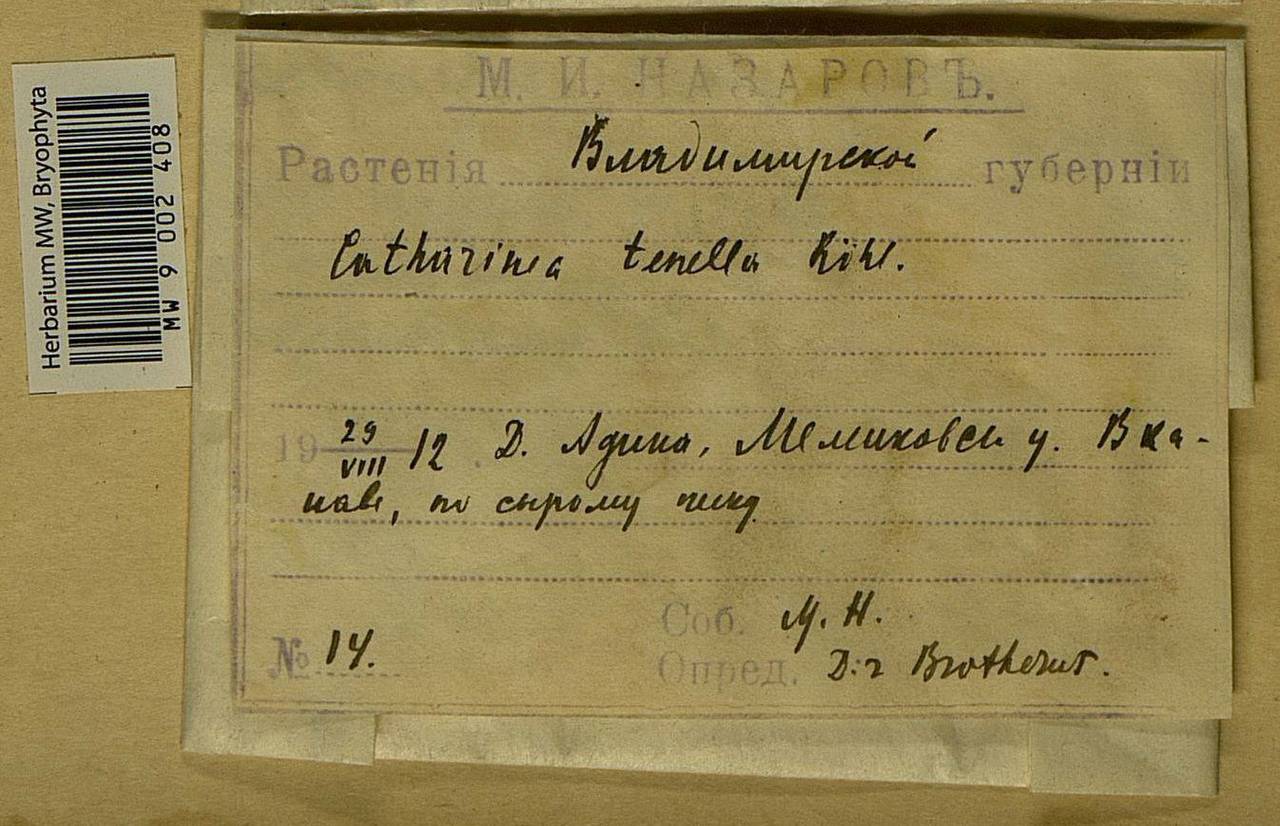 Herbarium MW, Bryophyta
MW 9 002 408
М. И. НАЗАРОВЪ.
Растенія Владимирской губерніи
Catharinea tenella Röhl.
19 29/VIII 12 Д. Адино, Меленковск у. В ка-
наве, по сырому песку
Соб. М. Н.
№ 14.
Опред. D:r Brotherus.